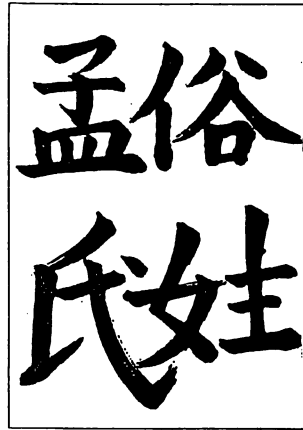 俗姓
孟氏